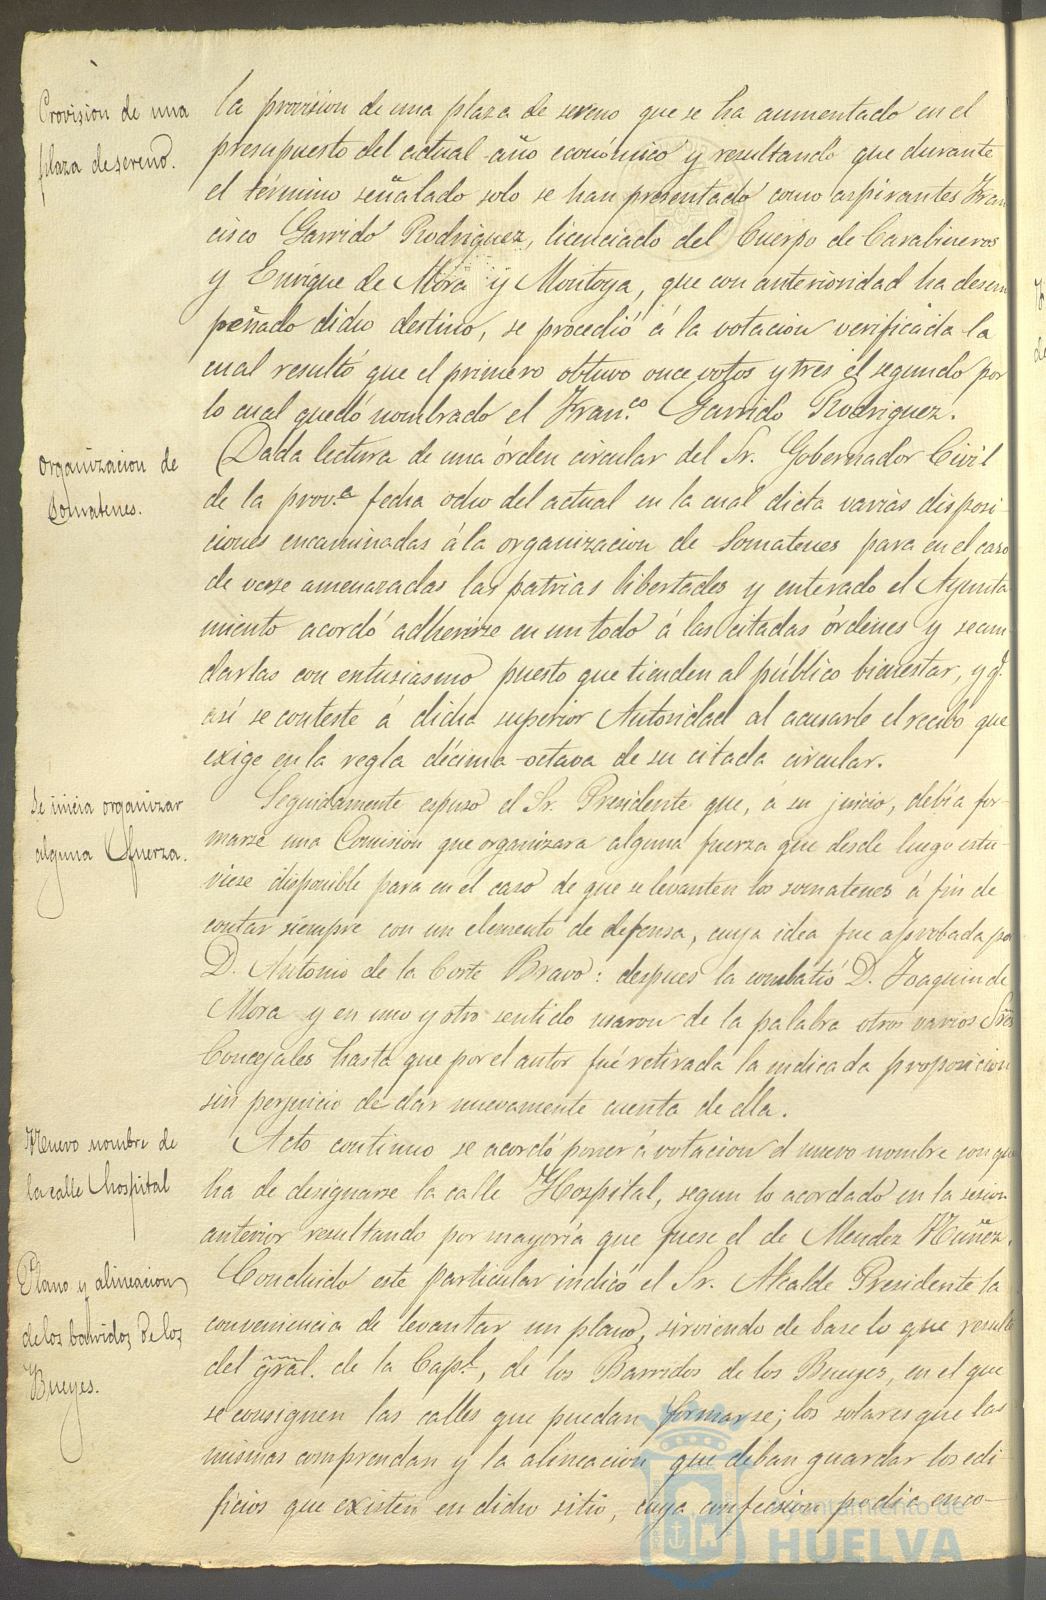 Provision de una
plaza de sereno.
la provision de una plaza de sereno que se ha aumentado en el
presupuesto del actual año económico y resultando que durante
el término señalado solo se han presentado como aspirantes Fran
cisco Garrido Rodriguez, licenciado del Cuerpo de Carabineros
y Enrique de Mora y Montoya, que con anterioridad ha desem
peñado dicho destino, se procedió á la votacion verificada la
cual resultó que el primero obtuvo once votos y tres el segundo por
lo cual quedó nombrado el Fran.co Garrido Rodriguez.
Organizacion de
Somatenes.
Dada lectura de una órden circular del Sr. Gobernador Civil
de la prov.a fecha ocho del actual en la cual dicta varias disposi-
ciones encaminadas á la organizacion de Somatenes para en el caso
de verse amenazadas las patrias libertades y enterado el Ayunta
miento acordó adherirse en un todo á las citadas órdenes y secun-
darlas con entusiasmo puesto que tienden al público bienestar, y q.e
así se conteste á dicha superior Autoridad al acusarle el recibo que
exige en la regla décima-octava de su citada circular.
Se inicia organizar
alguna fuerza.
Seguidamente espuso el Sr. Presidente que, á su juicio, debia for-
marse una Comision que organizara alguna fuerza que desde luego estu-
viese disponible para en el caso de que se levanten los somatenes á fin de
contar siempre con un elemento de defensa, cuya idea fue aprobada por
D. Antonio de la Corte Bravo: despues la combatió D. Joaquin de
Mora y en uno y otro sentido usaron de la palabra otros varios Sres
Concejales hasta que por el autor fué retirada la indicada proposicion
sin perjuicio de dar nuevamente cuenta de ella.
Nuevo nombre de
la calle hospital
Acto continuo se acordó poner á votacion el nuevo nombre con que
ha de designarse la calle Hospital, segun lo acordado en la sesion
anterior resultando por mayoría que fuese el de Mendez Nuñez.
Plano y alineacion
de los barridos de los
Bueyes.
Concluido este particular indicó el Sr. Alcalde Presidente la
conveniencia de levantar un plano, sirviendo de base lo que resulta
del gral. de la Capl, de los Barridos de los Bueyes, en el que
se consignen las calles que puedan formarse; los solares que las
mismas comprendan y la alineacion que deban guardar los edi
ficios que existen en dicho sitio, cuya confeccion podia enco-
Ayuntamiento de
HUELVA